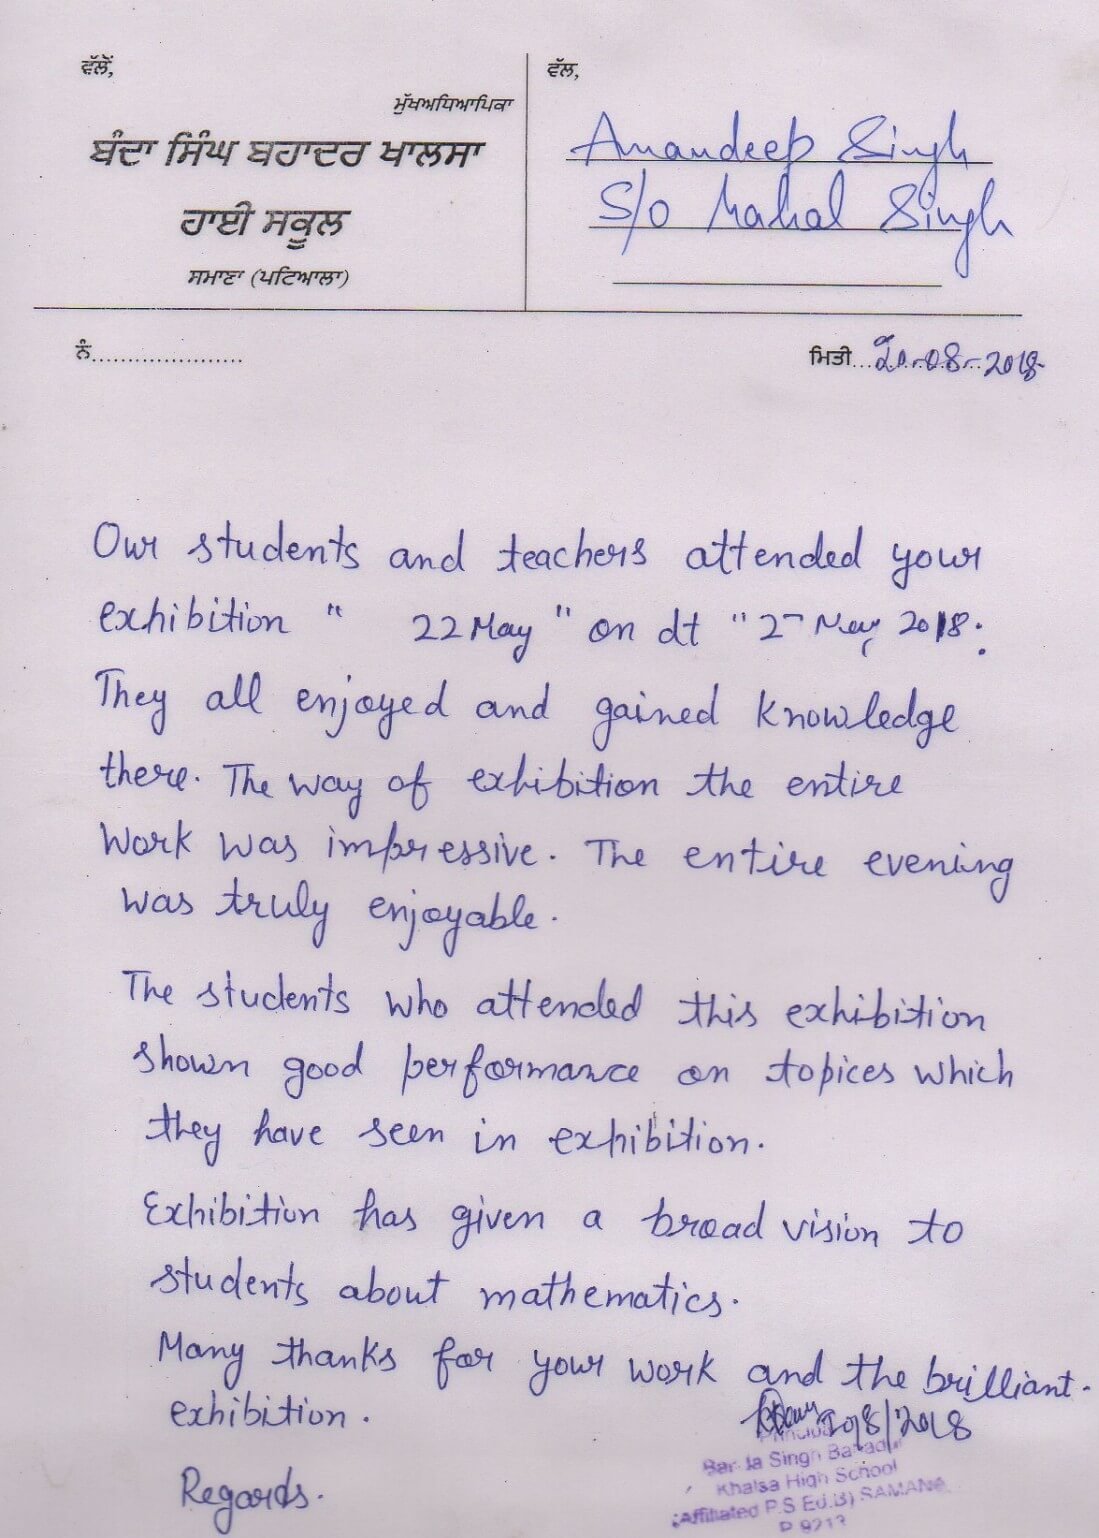 ਵੱਲੋਂ,
ਮੁੱਖਅਧਿਆਪਿਕਾ
ਬੰਦਾ ਸਿੰਘ ਬਹਾਦਰ ਖਾਲਸਾ
ਹਾਈ ਸਕੂਲ
ਸਮਾਣਾ (ਪਟਿਆਲਾ)
ਵੱਲ,
Amandeep Singh
S/o Mahal Singh
ਨੰ.....................
ਮਿਤੀ...20-08-2018
Our students and teachers attended your
exhibition " 22 May " on dt " May 2018.
They all enjoyed and gained knowledge
there. The way of exhibition the entire
work was impressive. The entire evening
was truly enjoyable.
The students who attended this exhibition
shown good performance on topices which
they have seen in exhibition.
Exhibition has given a broad vision to
students about mathematics.
Many thanks for your work and the brilliant.
exhibition.
20/8/2018
Regards.
Principal
Banda Singh Bahadur
Khalsa High School
(Affiliated P.S Ed.B) SAMANA